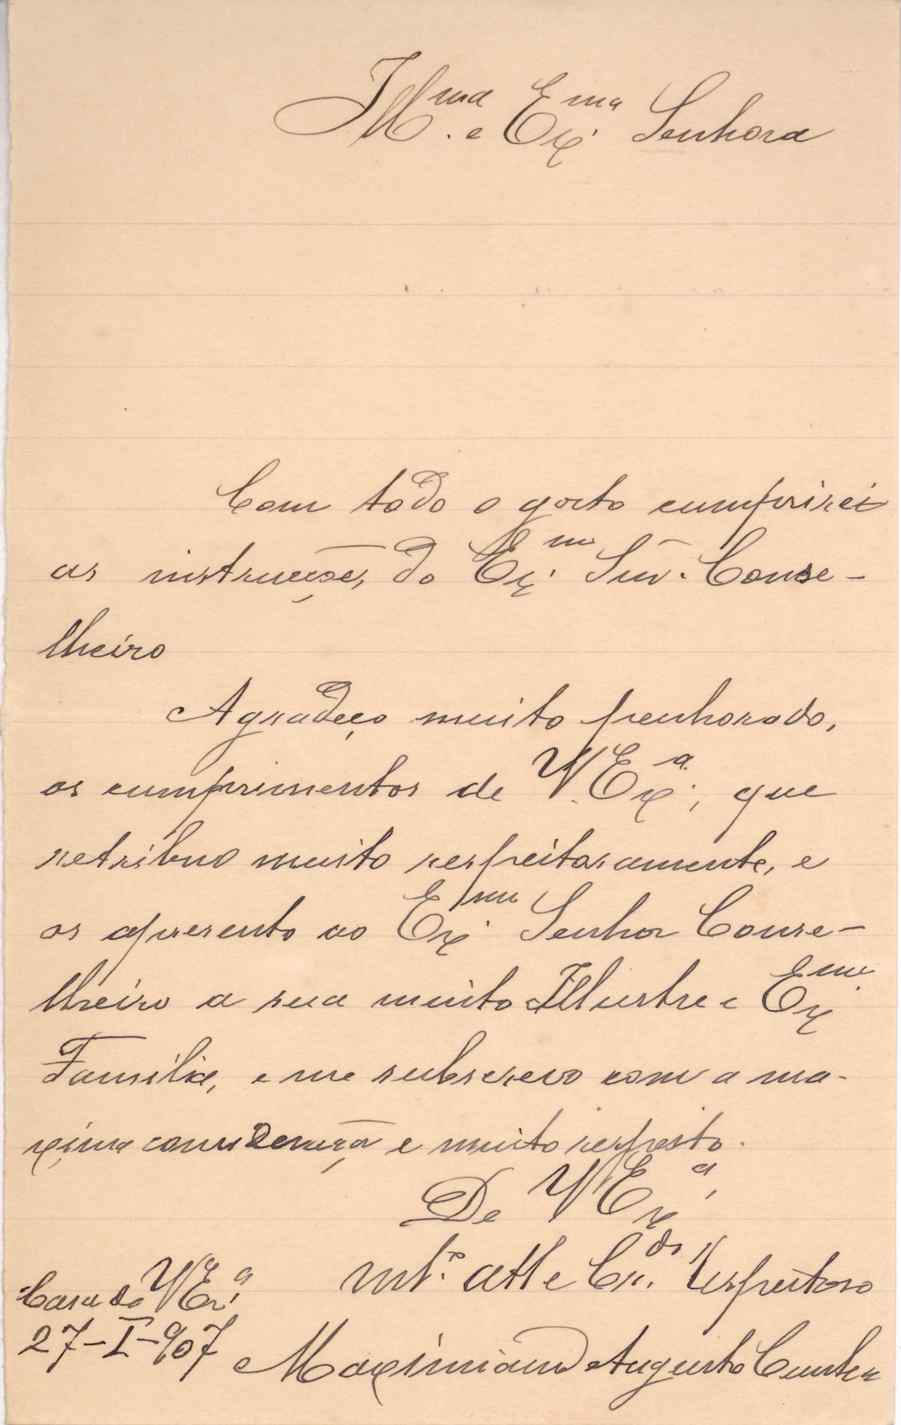 Illma. e Exma. Senhora
Com todo o gosto cumprirei
as instrucções do Exmo. Snr. Conse-
lheiro
Agradeço muito penhorado,
os cumprimentos de V. Exa., que
retribuo muito respeitosamente, e
os apresento ao Exmo. Senhor Conse-
lheiro a sua muito Illustre e Exma.
Familia, e me subscrevo com a ma-
xima consideração e muito respeito.
De V Exa.
Casa de V Exa. mto. att e Cr.do Respeitoso
27-I-907 Maximiano Augusto Cunha